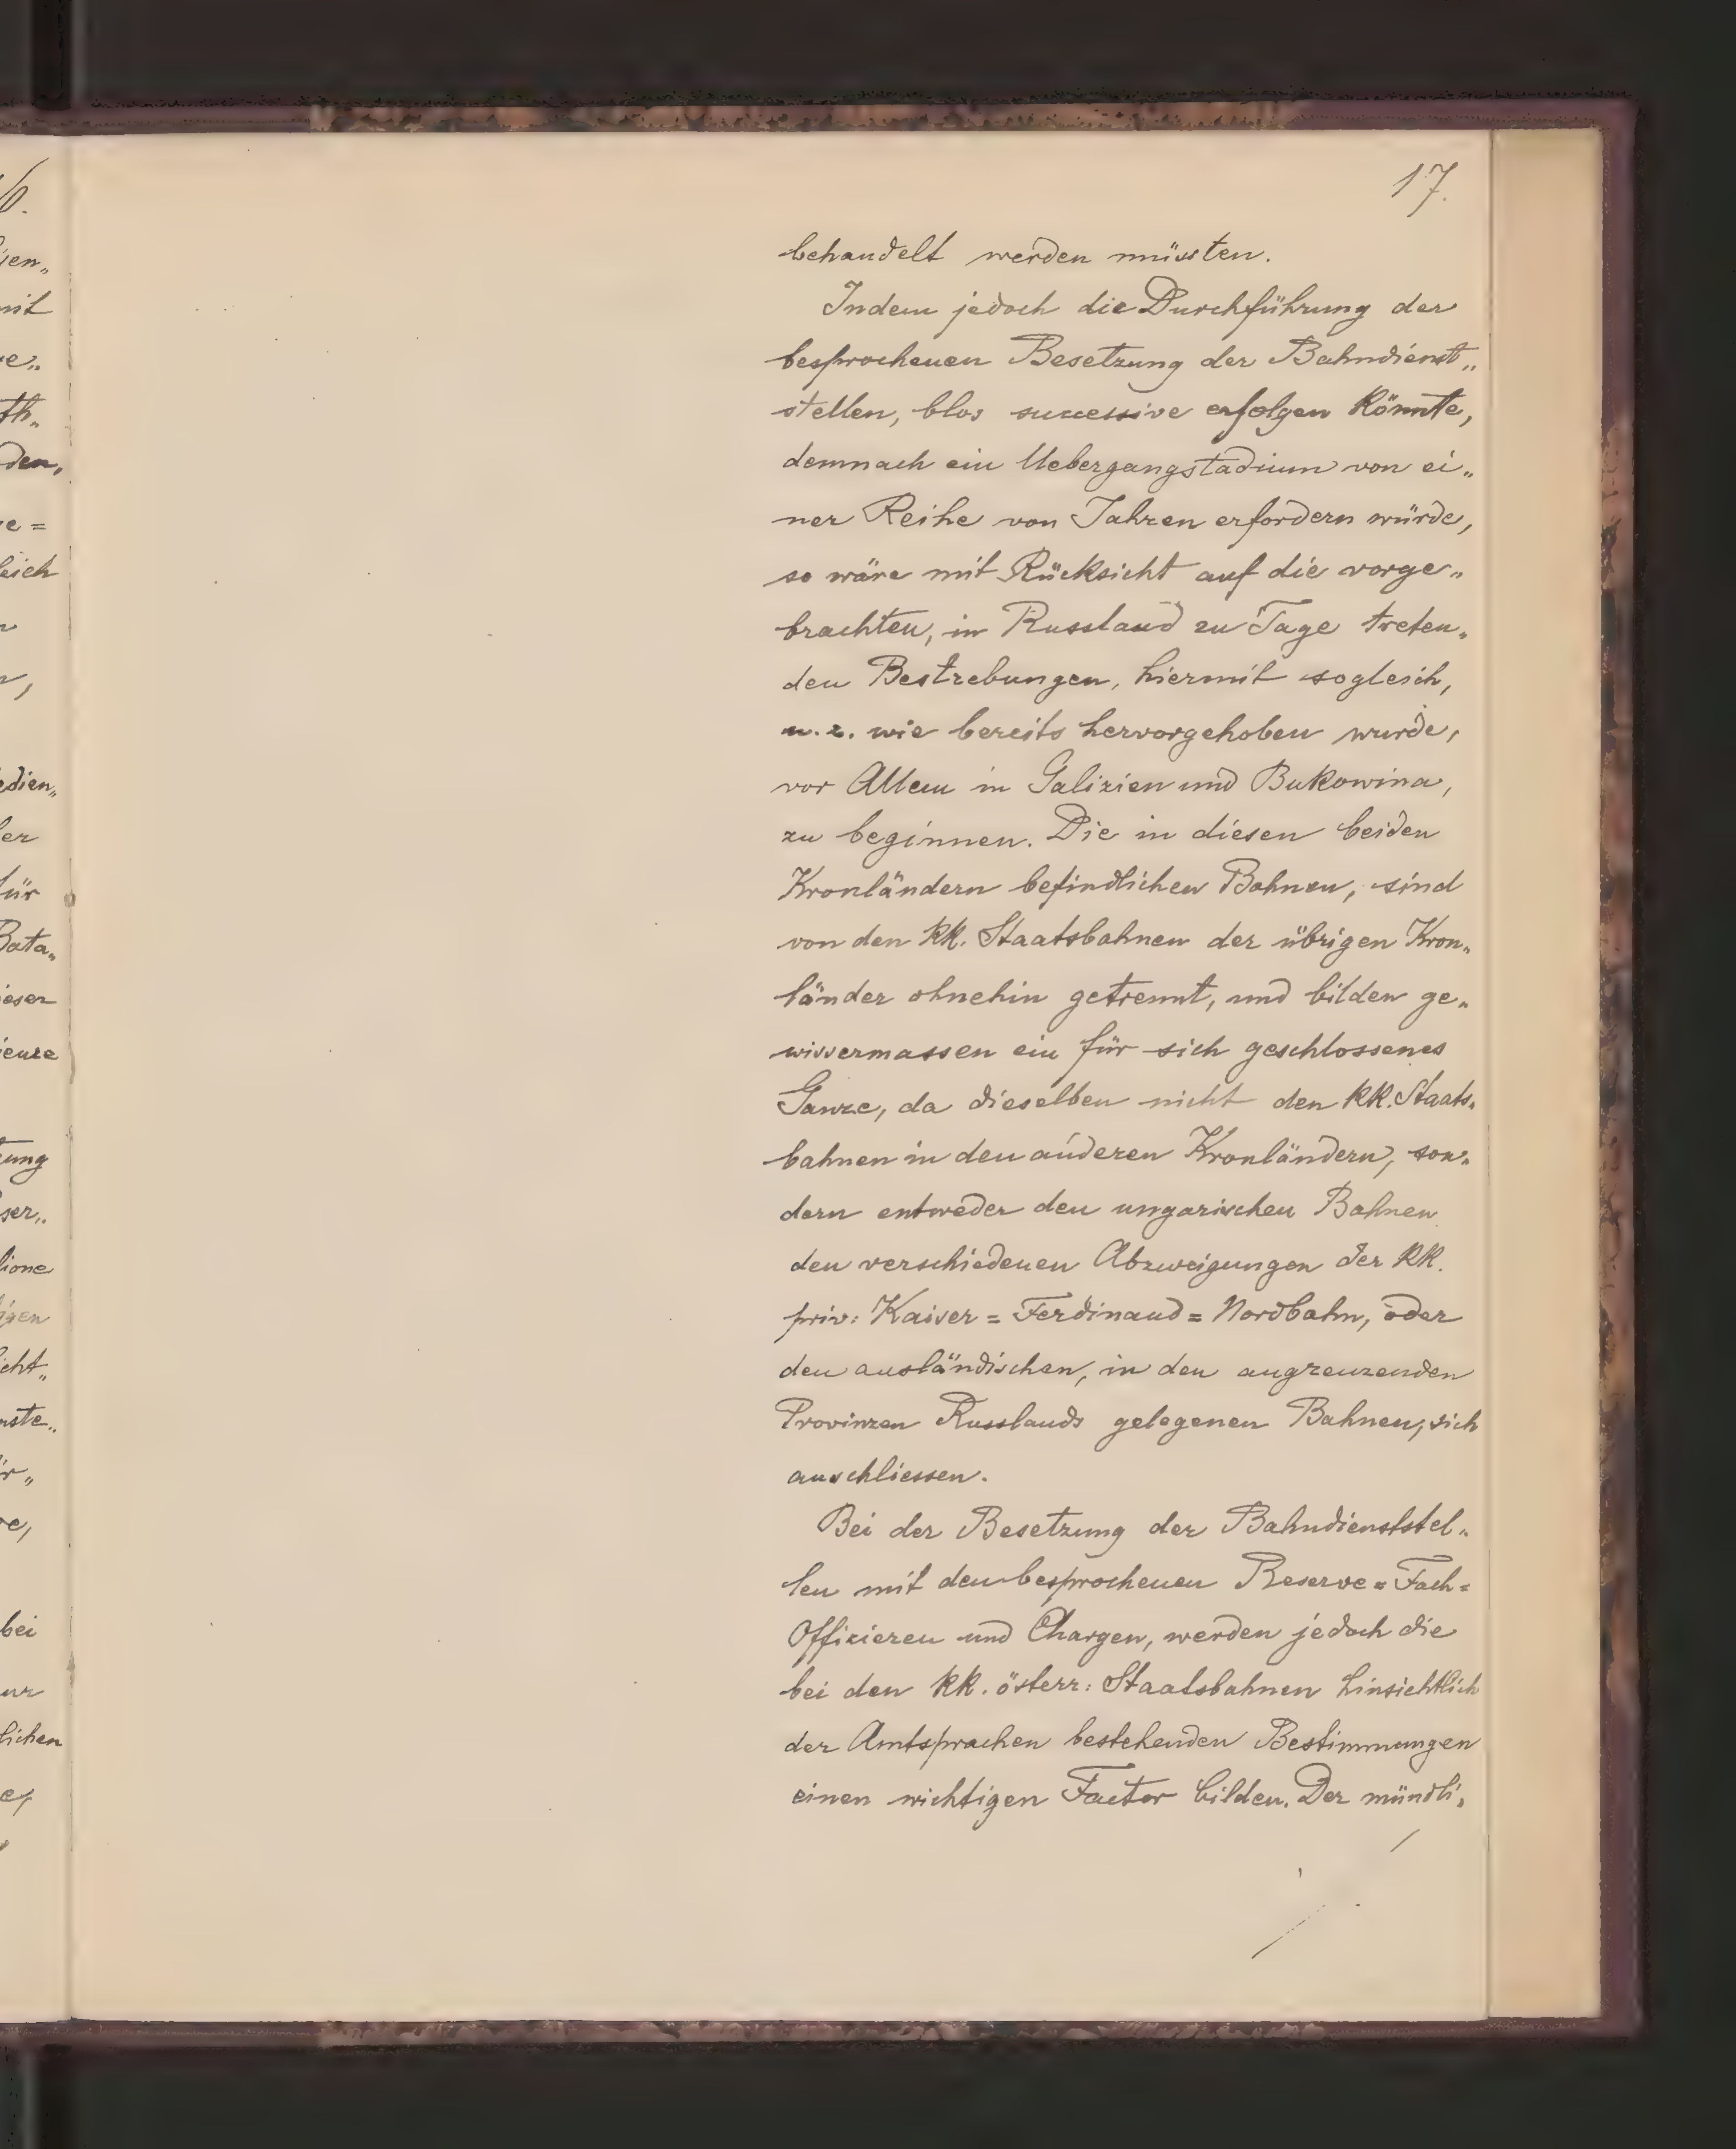 17.
behandelt werden müssten.
Indem jedoch die Durchführung der
besprochenen Besetzung der Bahndienst„
stellen, blos successive erfolgen könnte,
demnach ein Uebergangstadium von ei„
ner Reihe von Jahren erfordern würde,
so wäre mit Rücksicht auf die vorge„
brachten, in Russland zu Tage treten„
den Bestrebungen, hiermit sogleich,
u. z. wie bereits hervorgehoben wurde,
vor Allem in Galizien und Bukowina,
zu beginnen. Die in diesen beiden
Kronländern befindlichen Bahnen, sind
von den kk. Staatsbahnen der übrigen Kron„
länder ohnehin getrennt, und bilden ge„
wissermassen ein für sich geschlossenes
Ganze, da dieselben nicht den kk. Staats„
bahnen in den anderen Kronländern, son„
dern entweder den ungarischen Bahnen
den verschiedenen Abzweigungen der kk.
priv: Kaiser=Ferdinand=Nordbahn, oder
den ausländischen, in den angrenzenden
Provinzen Russlands gelegenen Bahnen, sich
anschliessen.
Bei der Besetzung der Bahndienststel„
len mit den besprochenen Reserve=Fach=
Offizieren und Chargen, werden jedoch die
bei den kk. österr: Staatsbahnen hinsichtlich
der Amtsprachen bestehenden Bestimmungen
einen wichtigen Factor bilden. Der mündli„